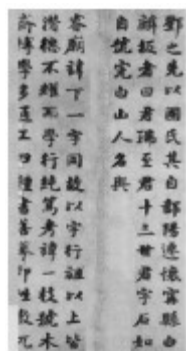 鄧之先以國氏其自鄱陽遷懷寧縣白
麟坂者曰君瑞至君十三世君字石如
自號完白山人名與
睿廟諱下一字同故以字行祖以上皆
潛德不耀而學行純篤考諱一枝號木
齋博學多通工四體書善摹印性兀